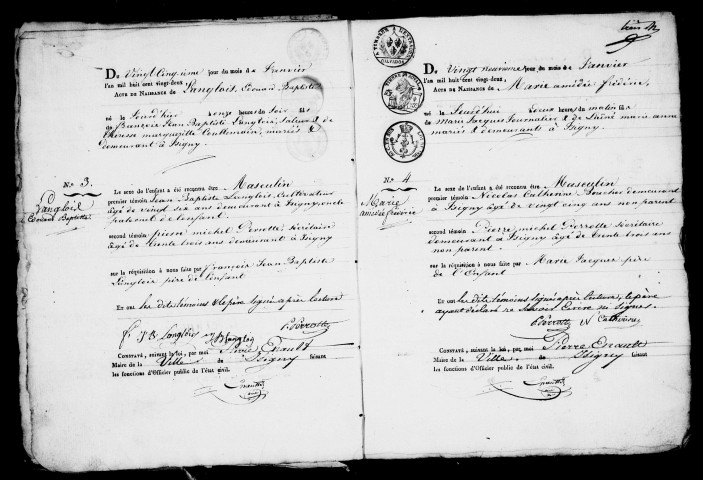 Du Vingt Cinquième jour du mois de Janvier
l'an mil huit cent vingt-deux.
Acte de Naissance de Langlois, Edouard Baptiste
né le Jourd'hier onze heures du Soir fils
de François Jean Baptiste Langlois,
Therese marguerite mariés &
demeurant à Isigny.
No 3.
Langlois
Edouard Baptiste
Le sexe de l'enfant a été reconnu être Masculin
premier témoin Jean Baptiste Langlois, Cultivateur
âgé de vingt six ans demeurant à Isigny, oncle
paternel de l'enfant.
second témoin pierre michel Perrotte, Secrétaire
âgé de trente trois ans demeurant à Isigny
sur la réquisition à nous faite par françois Jean Baptiste
Langlois père de l'enfant
Et ont les dits témoins & le père signé après lecture
f. J B Langlois Langlois
Perrotte
Constaté, suivant la loi, par moi Pierre Enault
Maire de la Ville de Isigny faisant
les fonctions d'Officier public de l'état civil.
Enault
TIMBRE
CALVADOS
Du Vingt neuvième jour du mois de Janvier
l'an mil huit cent vingt-deux.
Acte de Naissance de Marie amédée frédéric,
né le Jourd'hui deux heures du matin fils
de Marie Jacques Journalier & de marie anne
mariés & demeurants à Isigny.
No 4.
Marie
amédée frédéric
Le sexe de l'enfant a été reconnu être Masculin
premier témoin Nicolas Catherine demeurant
à Isigny âgé de vingt cinq ans non parent
second témoin Pierre michel Perrotte Secrétaire
demeurant à Isigny âgé de trente trois ans
non parent.
sur la réquisition à nous faite par Marie Jacques père
de l'Enfant
Et ont les dits témoins signés après lecture, le père
ayant déclaré ne savoir Ecrire ni Signer.
Perrotte N Catherine
Constaté, suivant la loi, par moi Pierre Enault
Maire de la Ville de Isigny faisant
les fonctions d'Officier public de l'état civil.
Enault